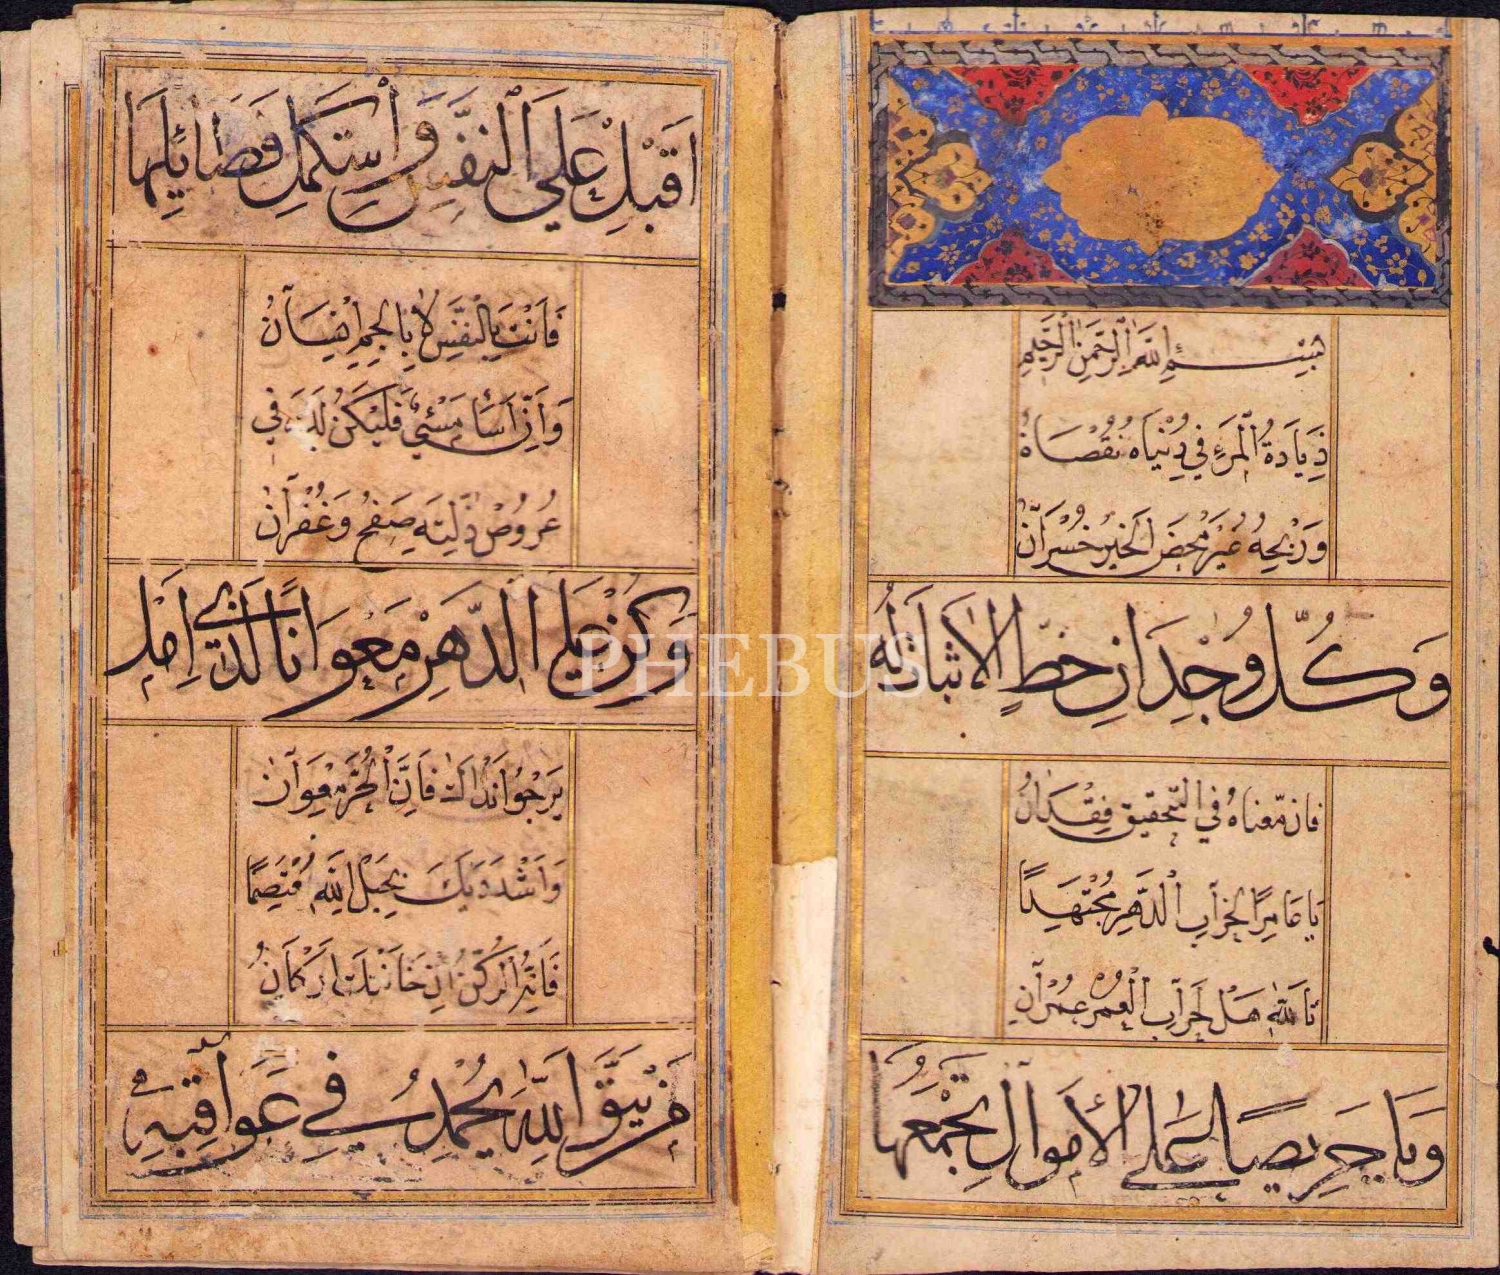 بِسْمِ اللهِ الرَّحْمنِ الرَّحِيمِ
زِيَادَةُ الْمَرْءِ في دُنْيَاهُ نُقْصَانُ
وَرِبْحُهُ غَيْرَ مَحْضِ الْخَيْرِ خُسْرَانُ
وَكُلُّ وُجْدَانِ حَظٍّ لا ثَبَاتَ لَهُ
فَانَّ مَعْنَاهُ فِي التَّحْقِيقِ فِقْدَانُ
يَا عَامِرًا لِخَرَابِ الدَّهْرِ مُجْتَهِدًا
تَاللهِ هَلْ لِخَرَابِ الْعُمْرِ عُمْرَانُ
وَيَا حَرِيصًا عَلَى الْأَمْوَالِ تَجْمَعُهَا
اَقْبِلْ عَلَى النَّفْسِ وَاسْتَكْمِلْ فَضَائِلَهَا
فَاَنْتَ بِالنَّفْسِ لَا بِالْجِسْمِ اِنْسَانُ
وَاِنْ اَسَأَ مُسِئٌ فَلْيَكُنْ لَكَ فِي
عُرُوضِ ذَلَّتِهِ صَفْحٌ وَغُفْرَانُ
وَكُنْ عَلَى الدَّهْرِ مِعْوَانًا لِذِي اَمَلٍ
يَرْجُوا نَدَاكَ فَاِنَّ الْحُرَّ مِعْوَانُ
وَاشْدُدْ يَدَيْكَ بِحَبْلِ اللهِ مُعْتَصِمًا
فَاِنَّهُ الرُّكْنُ اِنْ خَانَتْكَ اَرْكَانُ
مَنْ يَتَّقِ اللهَ يُحْمَدْ فِي عَوَاقِبِهِ
PHEBUS